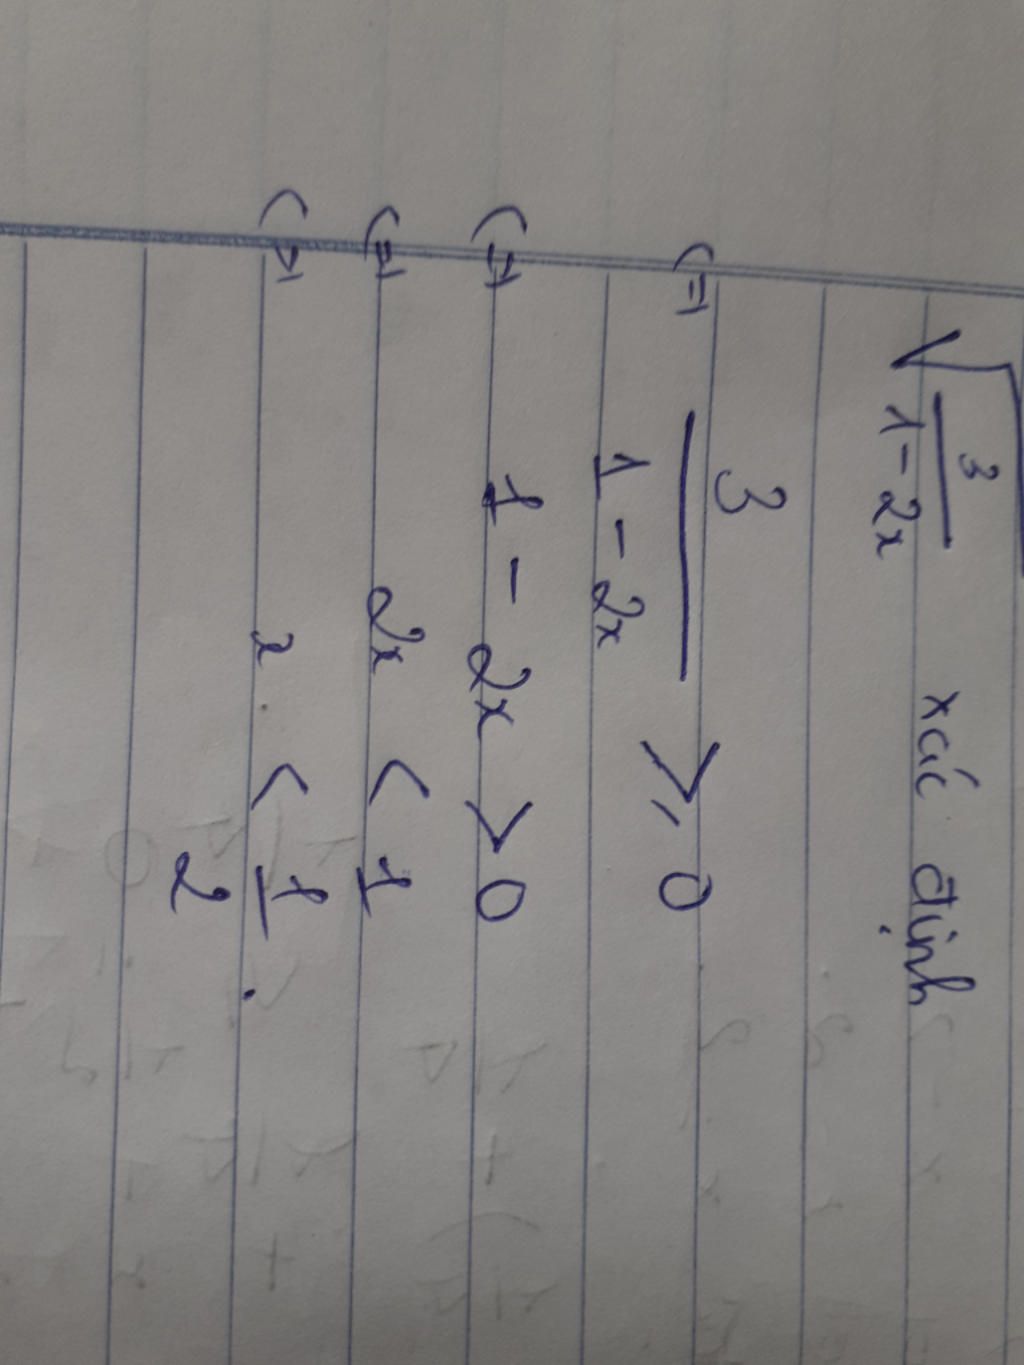 √(3/(1-2x)) xác định
(=) 3/(1-2x) ⩾ 0
(=) 1 - 2x > 0
(=) 2x < 1
(=) x < 1/2.